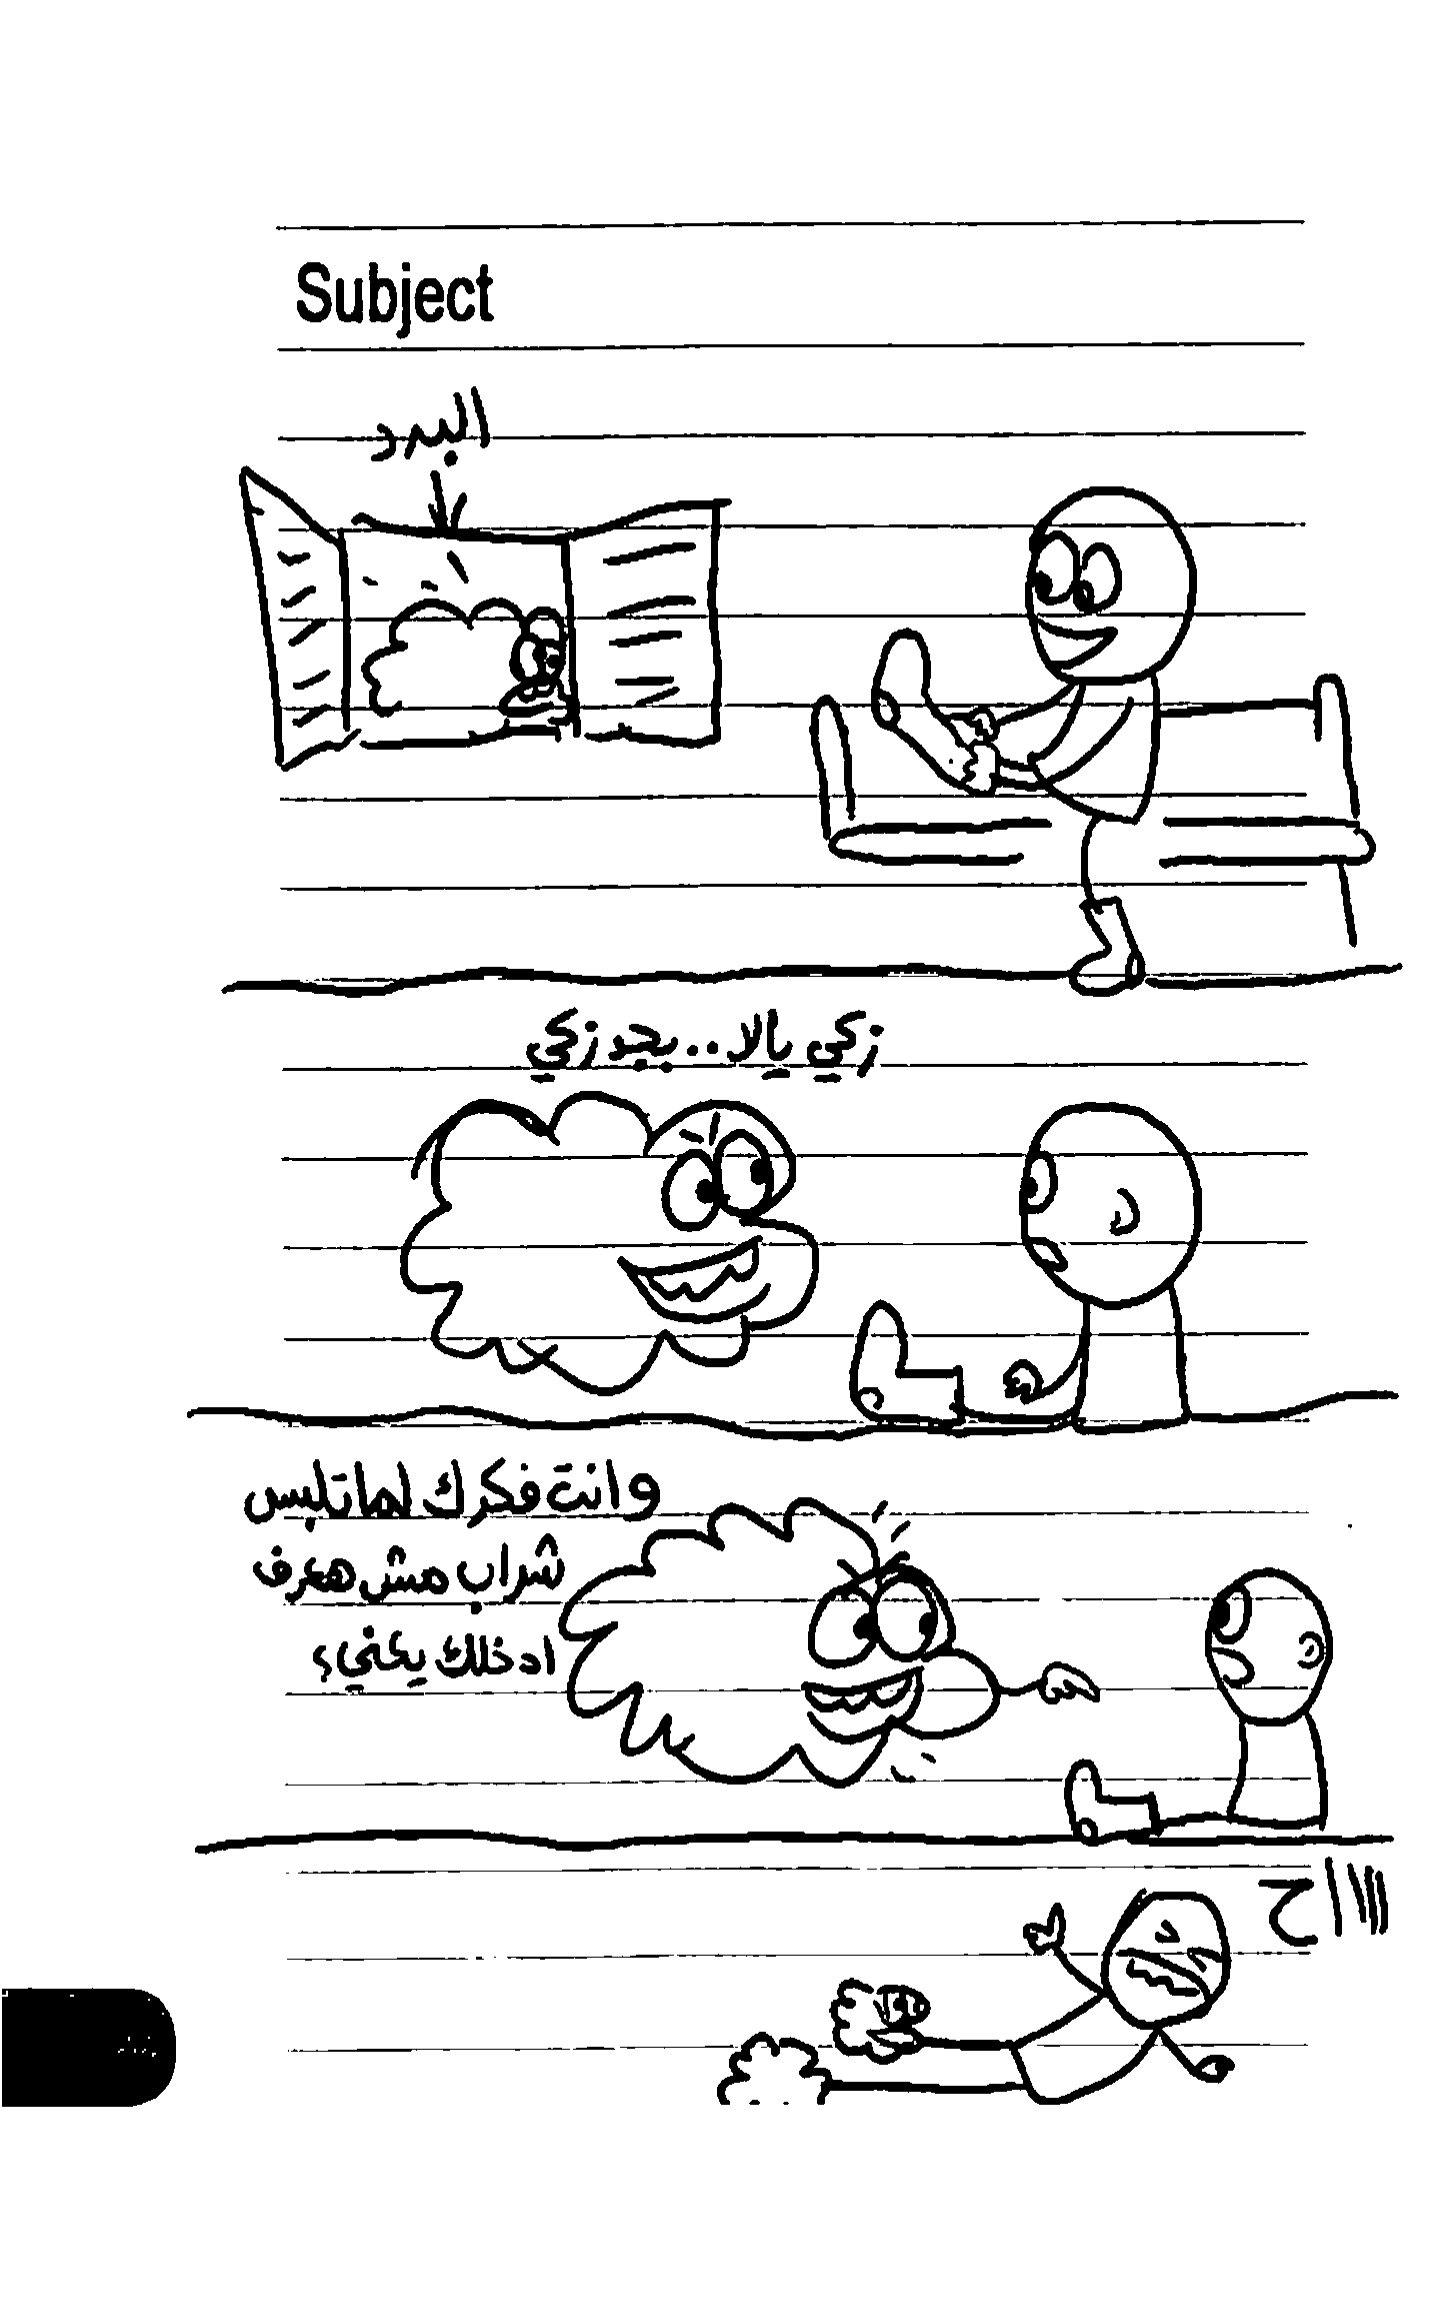 Subject
البرد
زكي يالا.. بجد زكي
وانت فكرك لما تلبس
شراب مش هعرف
ادخلك يعني؟